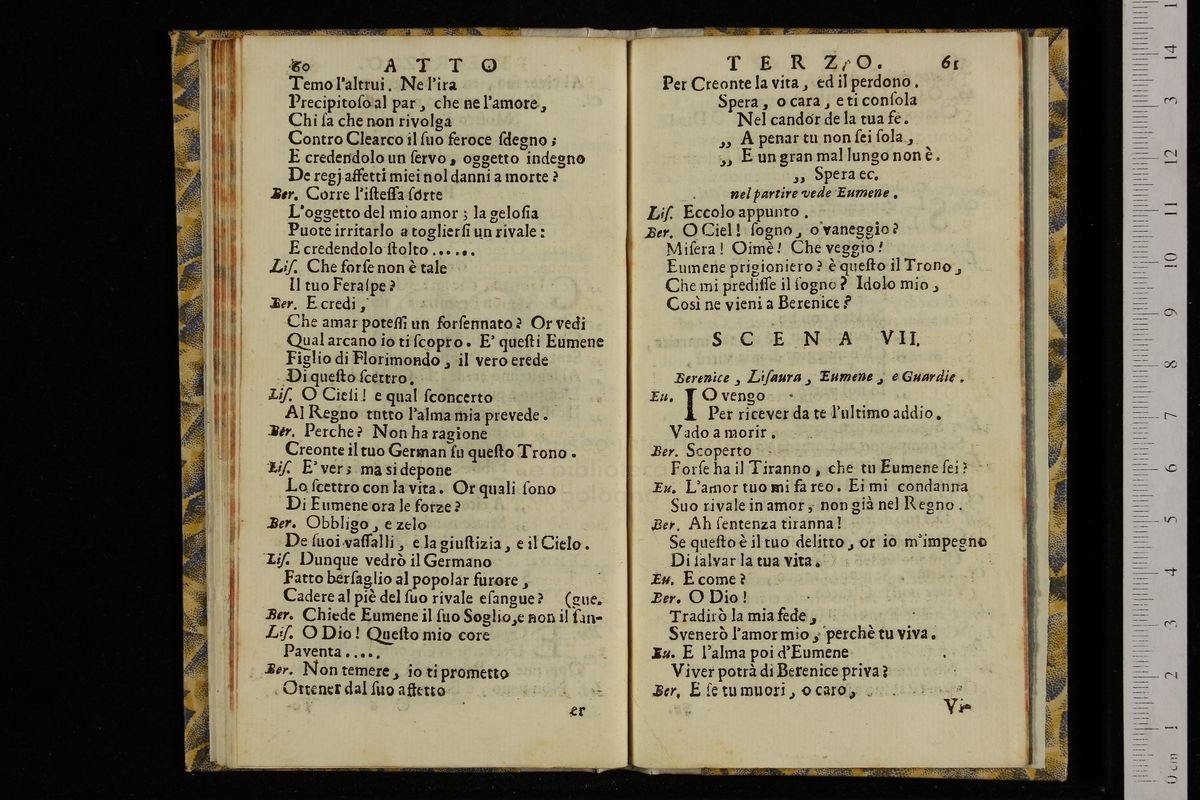 60 ATTO
Temo l'altrui. Ne l'ira
Precipitoſo al par, che ne l'amore,
Chi ſa che non rivolga
Contro Clearco il ſuo feroce ſdegno;
E credendolo un ſervo, oggetto indegno
De regj affetti miei nol danni a morte?
Ber. Corre l'iſteſſa ſorte
L'oggetto del mio amor; la geloſia
Puote irritarlo a toglierſi un rivale:
E credendolo ſtolto......
Liſ. Che forſe non è tale
Il tuo Feraſpe?
Ber. E credi,
Che amar poteſſi un forſennato? Or vedi
Qual arcano io ti ſcopro. E' queſti Eumene
Figlio di Florimondo, il vero erede
Di queſto ſcettro.
Liſ. O Cieli! e qual ſconcerto
Al Regno tutto l'alma mia prevede.
Ber. Perche? Non ha ragione
Creonte il tuo German ſu queſto Trono.
Liſ. E' ver; ma si depone
Lo ſcettro con la vita. Or quali ſono
Di Eumene ora le forze?
Ber. Obbligo, e zelo
De ſuoi vaſſalli, e la giuſtizia, e il Cielo.
Liſ. Dunque vedrò il Germano
Fatto berſaglio al popolar furore,
Cadere al piè del ſuo rivale eſangue? (gue.
Ber. Chiede Eumene il ſuo Soglio, e non il ſan-
Liſ. O Dio! Queſto mio core
Paventa.....
Ber. Non temere, io ti prometto
Ottener dal ſuo affetto
er
TERZO. 61
Per Creonte la vita, ed il perdono.
Spera, o cara, e ti conſola
Nel candor de la tua fe.
,, A penar tu non ſei ſola,
,, E un gran mal lungo non è.
,, Spera ec.
nel partire vede Eumene.
Liſ. Eccolo appunto.
Ber. O Ciel! ſogno, o vaneggio?
Miſera! Oimè! Che veggio!
Eumene prigioniero? è queſto il Trono,
Che mi prediſſe il ſogno? Idolo mio,
Così ne vieni a Berenice?
SCENA VII.
Berenice, Liſaura, Eumene, e Guardie.
Eu. IO vengo
Per ricever da te l'ultimo addio.
Vado a morir.
Ber. Scoperto
Forſe ha il Tiranno, che tu Eumene ſei?
Eu. L'amor tuo mi fa reo. Ei mi condanna
Suo rivale in amor, non già nel Regno.
Ber. Ah ſentenza tiranna!
Se queſto è il tuo delitto, or io m'impegno
Di ſalvar la tua vita.
Eu. E come?
Ber. O Dio!
Tradirò la mia fede,
Svenerò l'amor mio, perchè tu viva.
Eu. E l'alma poi d'Eumene
Viver potrà di Berenice priva?
Ber. E ſe tu muori, o caro,
Vi-
0 cm 1 2 3 4 5 6 7 8 9 10 11 12 13 14